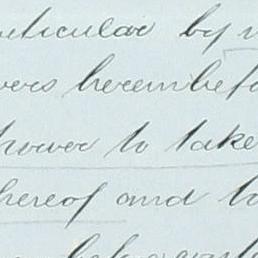 rticular by
vers hereinbefo
power to take
hereof and to